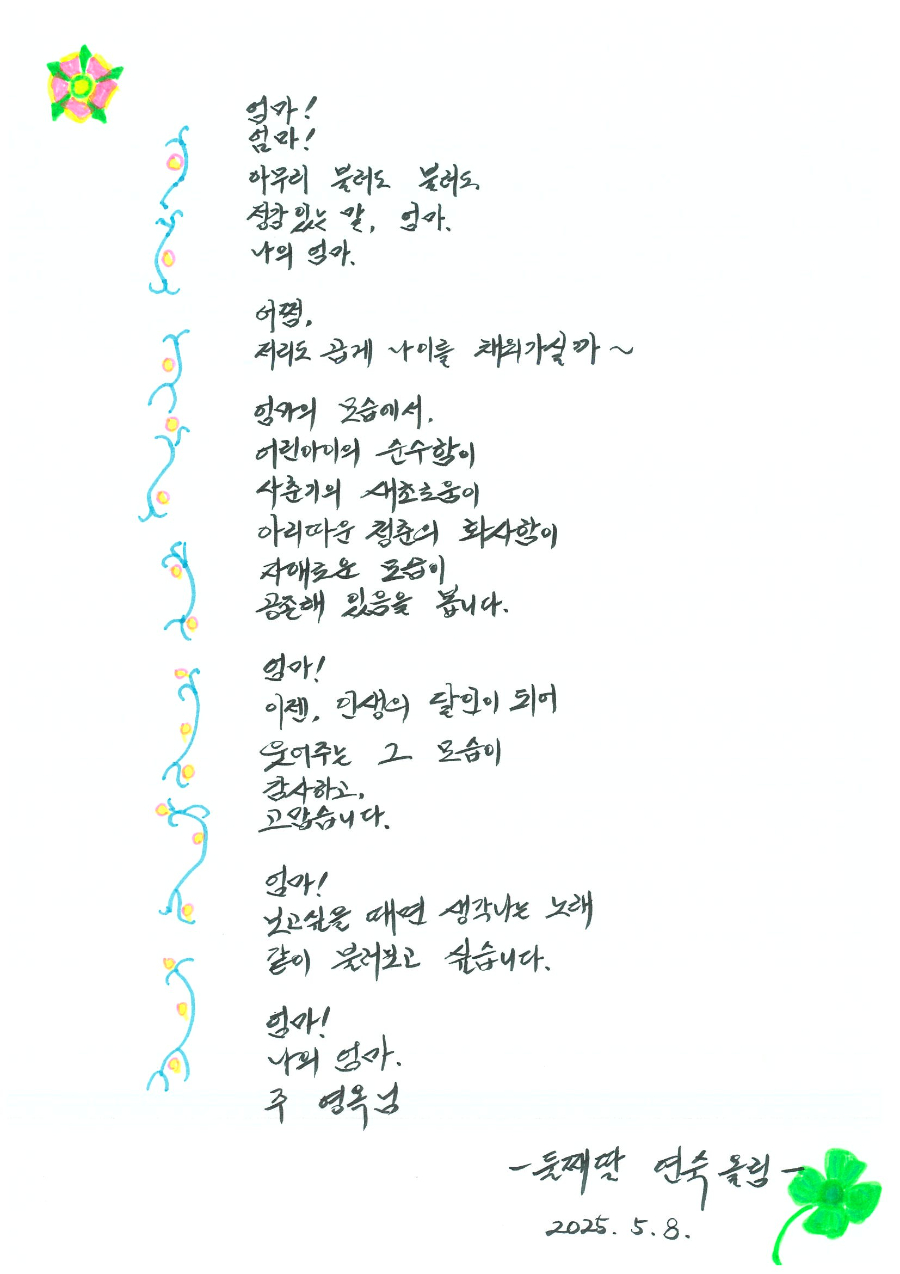 엄마!
엄마!
아무리 불러도 불러도
정감있는 말, 엄마.
나의 엄마.
어쩜,
저리도 곱게 나이를 채워가실까~
엄마의 모습에서.
어린아이의 순수함이
사춘기의 새초로움이
아리따운 청춘의 화사함이
자애로운 모습이
공존해 있음을 봅니다.
엄마!
이젠, 인생의 달인이 되어
웃어주는 그 모습이
감사하고,
고맙습니다.
엄마!
보고싶을 때면 생각나는 노래
같이 불러보고 싶습니다.
엄마!
나의 엄마.
주 영옥님
-둘째딸 연숙올림-
2025. 5. 8.